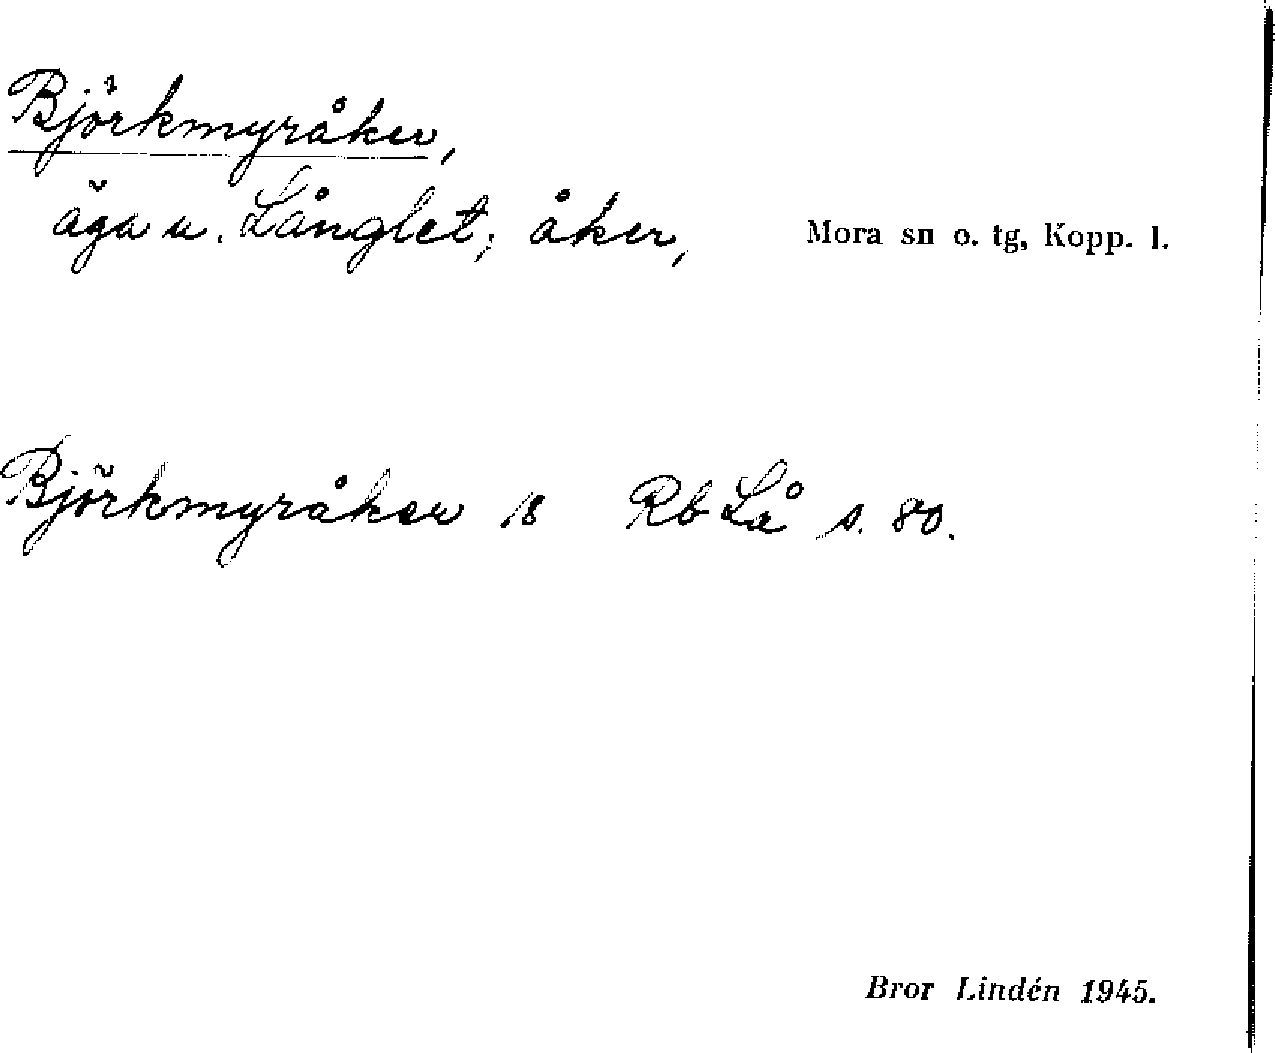 Björkmyråker,
äga u. Långlet; åker, Mora sn o. tg, Kopp. l.
Björkmyråker /s Rb Lå s. 80.
Bror Lindén 1945.